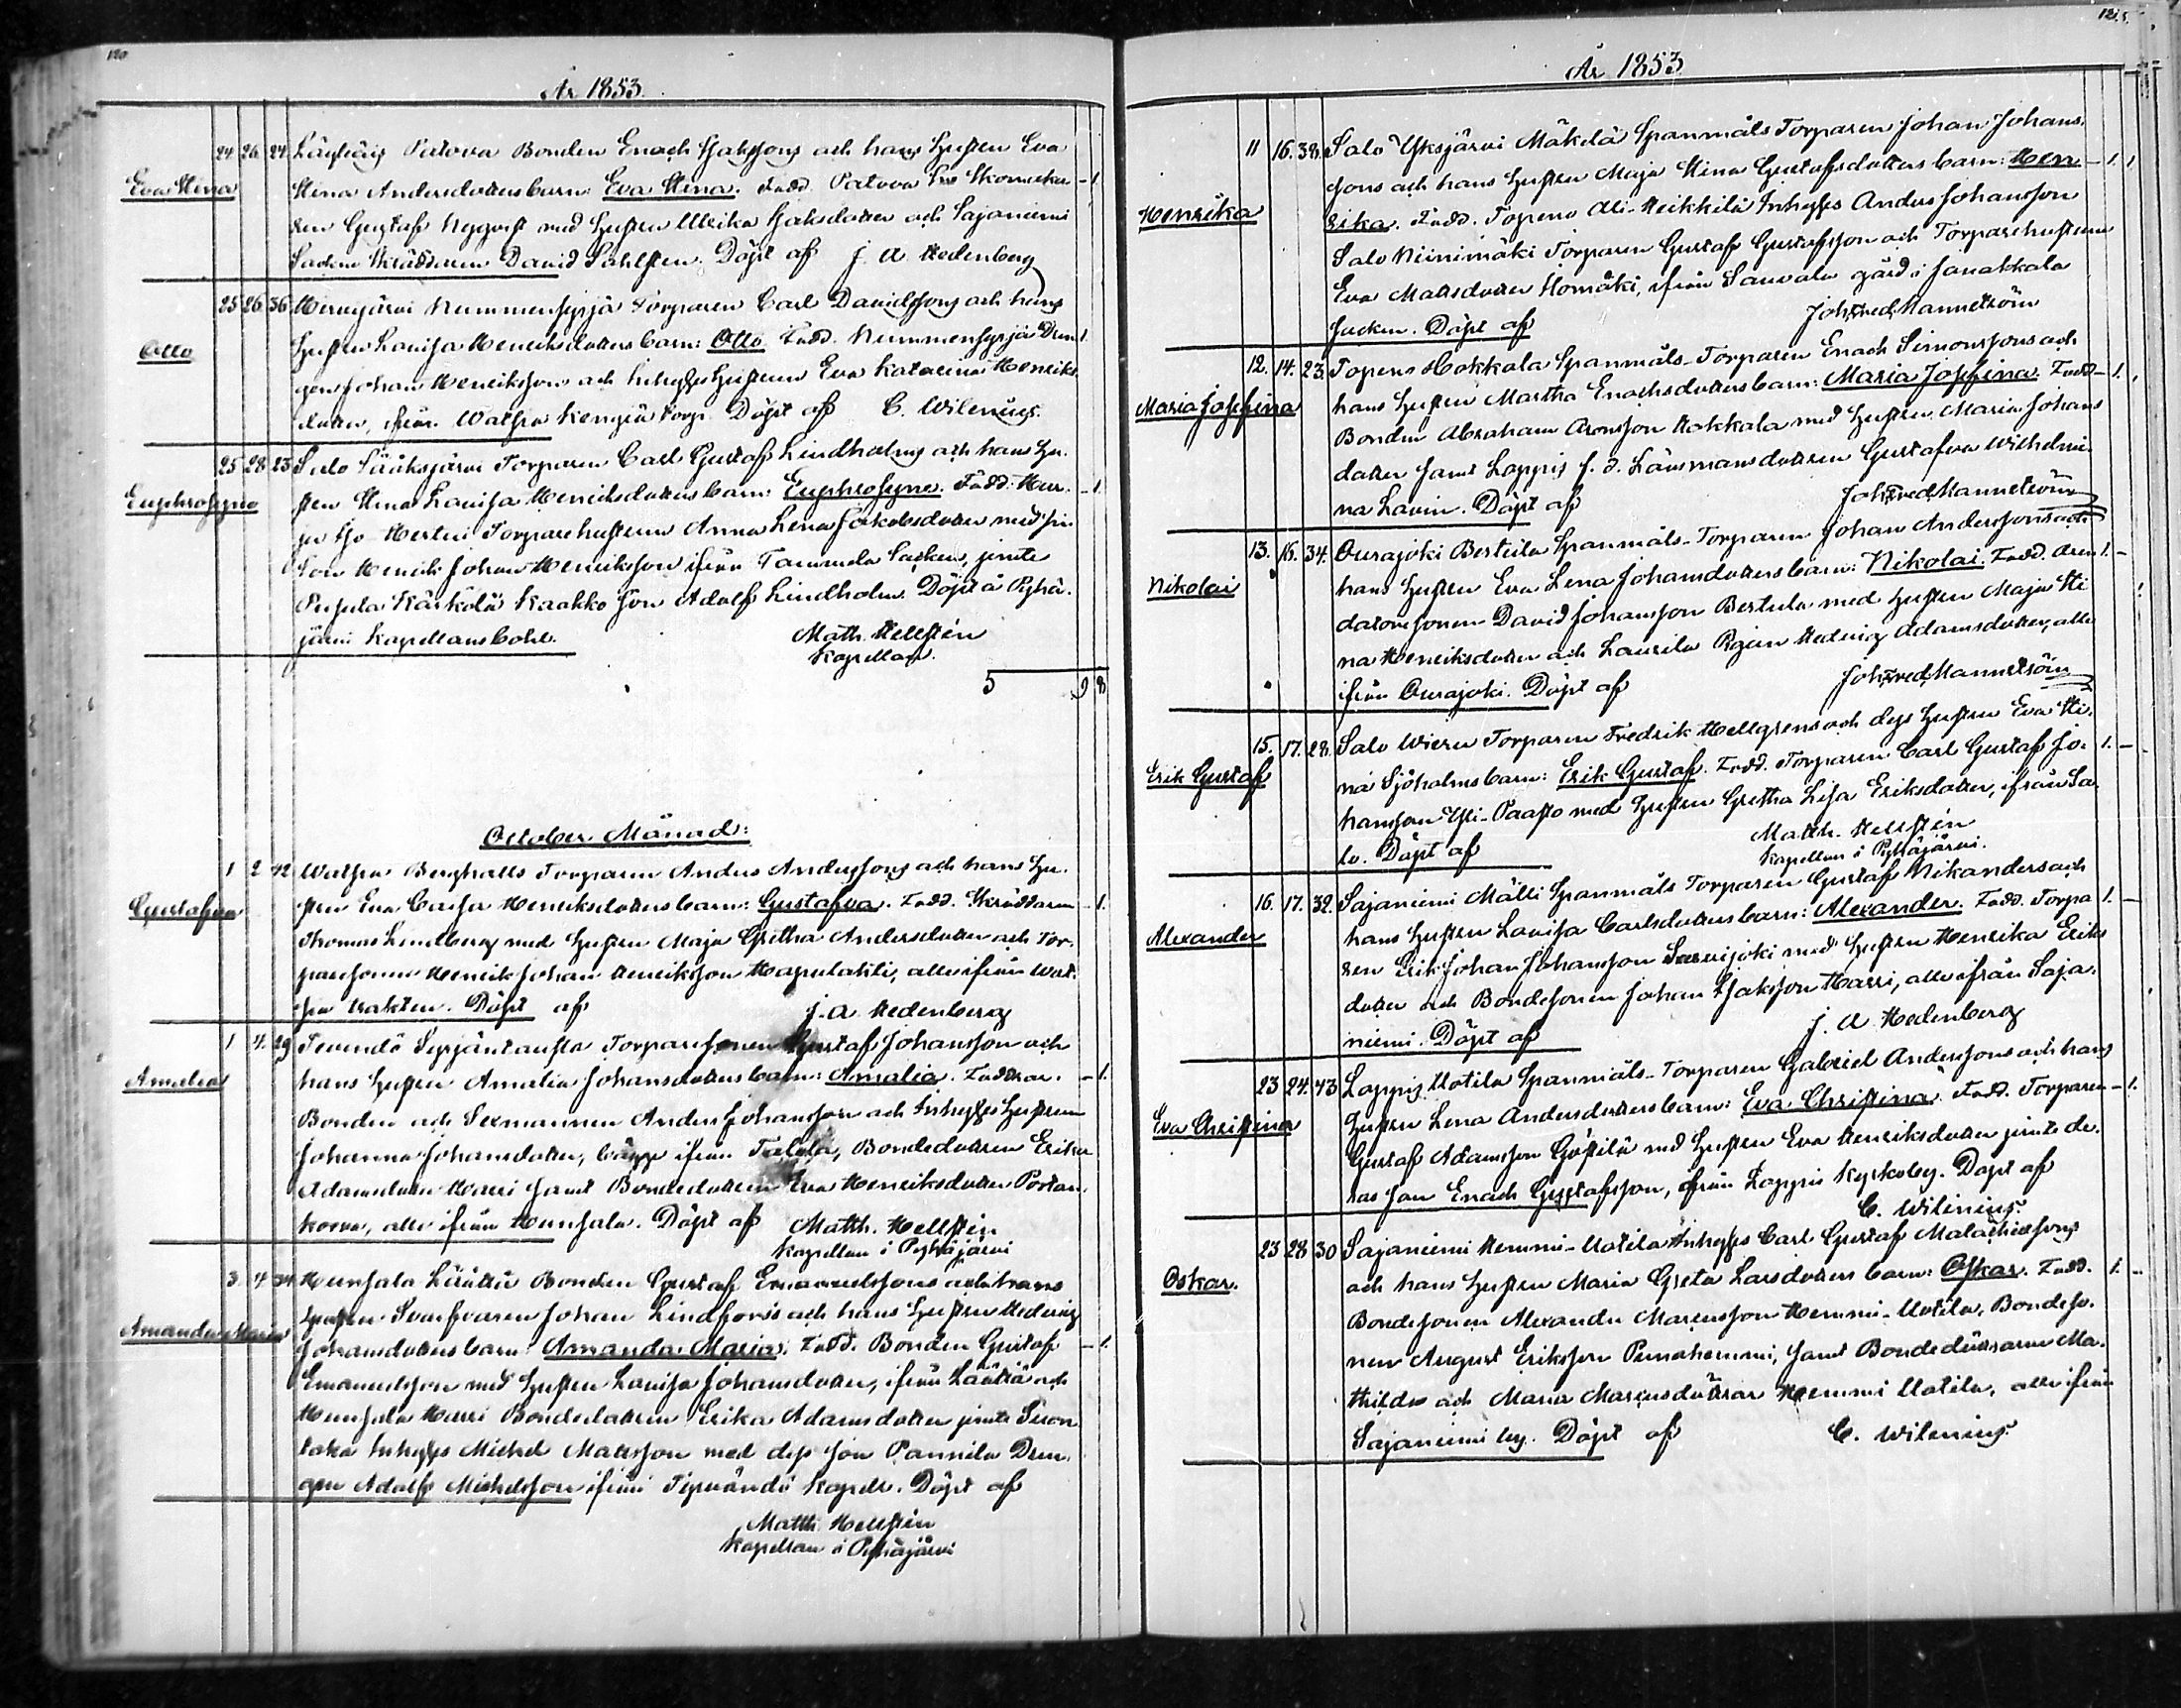 120
År 1853.
24 26 24 Läyliäis Patova Bonden Enoch Isakssons och hans Hustru Eva
Eva Stina
Stina Andersdotters barn: Eva Stina. Fadd. Patova Skomaka- 1.
ren Gustaf Nyqvist med Hustru Ulrika Isaksdotter och Sajaniemi
Sacken Skräddaren David Sahlsten. Döpt af J. A. Hedenberg
25 26 36 Hirvijärvi Nummensyrjä Torparen Carl Davidssons och hans
Otto
Hustru Lovisa Henriksdotters barn: Otto. Fadd. Nummensyrjä Drän- 1.
gen Johan Henriksson och Inhyses Hustrun Eva Katarina Henriks
dotter, ifrån Watsia Torp. Döpt af C. Wilenius.
25 28 23 Salo Sääksjärvi Torparen Carl Gustaf Lindholms och hans Hu-
Euphrosyne
stru Stina Lovisa Henriksdotters barn: Euphrosyne. Fadd. 1.
Torparehustrun Anna Lena Jakobsdotter med sin
Son Henrik Johan Henriksson ifrån Tammela Socken, jemte
Pusula Kärkölä Kaakko Son Adolf Lindholm. Döpt å Pyhä-
järvi Kapellansbohl. Math. Hellstén
Kapellan.
5 9 8
October Månad:
1 2 42 Watsia Berghälls Torparen Anders Anderssons och hans Hu-
Gustafva
stru Eva Caisa Henriksdotters barn: Gustafva. Fadd. Skräddaren 1.
Thomas Lindberg med Hustru Maja Gretha Andersdotter och Tor-
paresonen Henrik Johan Henriksson, alla ifrån Wat-
sia trakten. Döpt af J. A. Hedenberg
1 4. 29 Torparesonen Gustaf Johansson och
Amalia
hans Hustru Amalia Johansdotters barn: Amalia. Faddrar. 1.
Bonden och Sexmannen Anders Johansson och Inhyses Hustrun
Johanna Johansdotter, bägge ifrån Talola, Bondedottren Erika
Adamsdotter Harri samt Bondedottren Eva Henriksdotter Portan-
korva, alla ifrån Hunsala. Döpt af Matth. Hellstén
Kapellan i Pyhäjärvi
3. 4 34 Hunsala Läätiä Bonden Gustaf Emanuelssons och hans
Hustru Svarfvaren Johan Lindfors's och hans Hustru Hedvig
Amanda Maria
Johansdotters barn: Amanda Maria. Fadd. Bonden Gustaf 1.
Emanuelsson med Hustru Lovisa Johansdotter, ifrån Läätiä och
Hunsala Harri Bondedottren Erika Adamsdotter jemte
Inhyses Michel Mattsson med dess son Pannila Drän-
gen Adolf Michelsson ifrån Kapell. Döpt af
Matth. Hellstén
Kapellan i Pyhäjärvi
År 1853
11 16. 38. Salo Yksjärvi Mäkelä Spanmåls Torparen Johan Johans-
Henrika
sons och hans Hustru Maja Stina Gustafsdotters barn: Hen- 1.
rika. Fadd. Topeno Ali-Heikkilä Inhyses Anders Johansson
Salo Niinimäki Torparen Gustaf Gustafsson och Torparehustrun
Eva Mattsdotter Homäki, ifrån Sauvala gård i Janakkala
Socken. Döpt af Joh. Fred. Mannström
12. 14. 23. Topeno Hokkala Spanmåls-Torparen Enoch Simonssons och
Maria Josefina
hans Hustru Martha Enochsdotters barn: Maria Josefina. Fadd. 1.
Bonden Abraham Aronsson Hokkala med Hustru Maria Johans
dotter samt Loppis f. d. Länsmansdottren Gustafva Wilhelmi-
na Lavin. Döpt af Joh. Fred. Mannström
13. 16. 34. Ourajoki Bertula Spanmåls-Torparen Johan Anderssons och
Nikolai
hans Hustru Eva Lena Johansdotters barn: Nikolai. Fadd. 1.
sonen David Johansson Bertula med Hustru Maja Sti
na Henriksdotter och Laurila Pigan Hedvig Adamsdotter, alla
ifrån Ourajoki. Döpt af Joh. Fred. Mannström
15. 17. 28. Salo Torparen Fredrik Hellgrens och dess Hustru Eva Sti-
Erik Gustaf
na Sjöholms barn: Erik Gustaf. Fadd. Torparen Carl Gustaf Jo- 1.
hansson Yli-Paaso med Hustru Gretha Lisa Eriksdotter, ifrån Sa-
lo. Döpt af Matth. Hellstén
Kapellan i Pyhäjärvi.
16. 17. 32. Sajaniemi Mälli Spanmåls Torparen Gustaf Nikanders och
Alexander
hans Hustru Lovisa Carlsdotters barn: Alexander. Fadd. Torpa- 1.
ren Erik Johan Johansson Saarijoki med Hustru Henrika Eriks
dotter och Bondesonen Johan Isaksson Harri, alla ifrån Saja-
niemi. Döpt af J. A. Hedenberg
23 24. 43 Loppis Uotila Spanmåls-Torparen Gabriel Anderssons och hans
Eva Christina
Hustru Lena Andersdotters barn: Eva Christina. Fadd. Torparen 1.
Gustaf Adamsson med Hustru Eva Henriksdotter jemte de-
ras Son Enoch Gustafsson, ifrån Loppis Kyrkoby. Döpt af
C. Wilenius
23 28 30 Sajaniemi Hemmi-Uotila Inhyses Carl Gustaf Malachiassons
Oskar.
och hans Hustru Maria Greta Larsdotters barn: Oskar. Fadd. 1.
Bondesonen Alexander Marcusson Hemmi-Uotila, Bondeso-
nen August Eriksson Punahemmi, samt Bondedöttrarne Ma-
thilda och Maria Marcusdöttrar Hemmi Uotila, alla ifrån
Sajaniemi by. Döpt af C. Wilenius